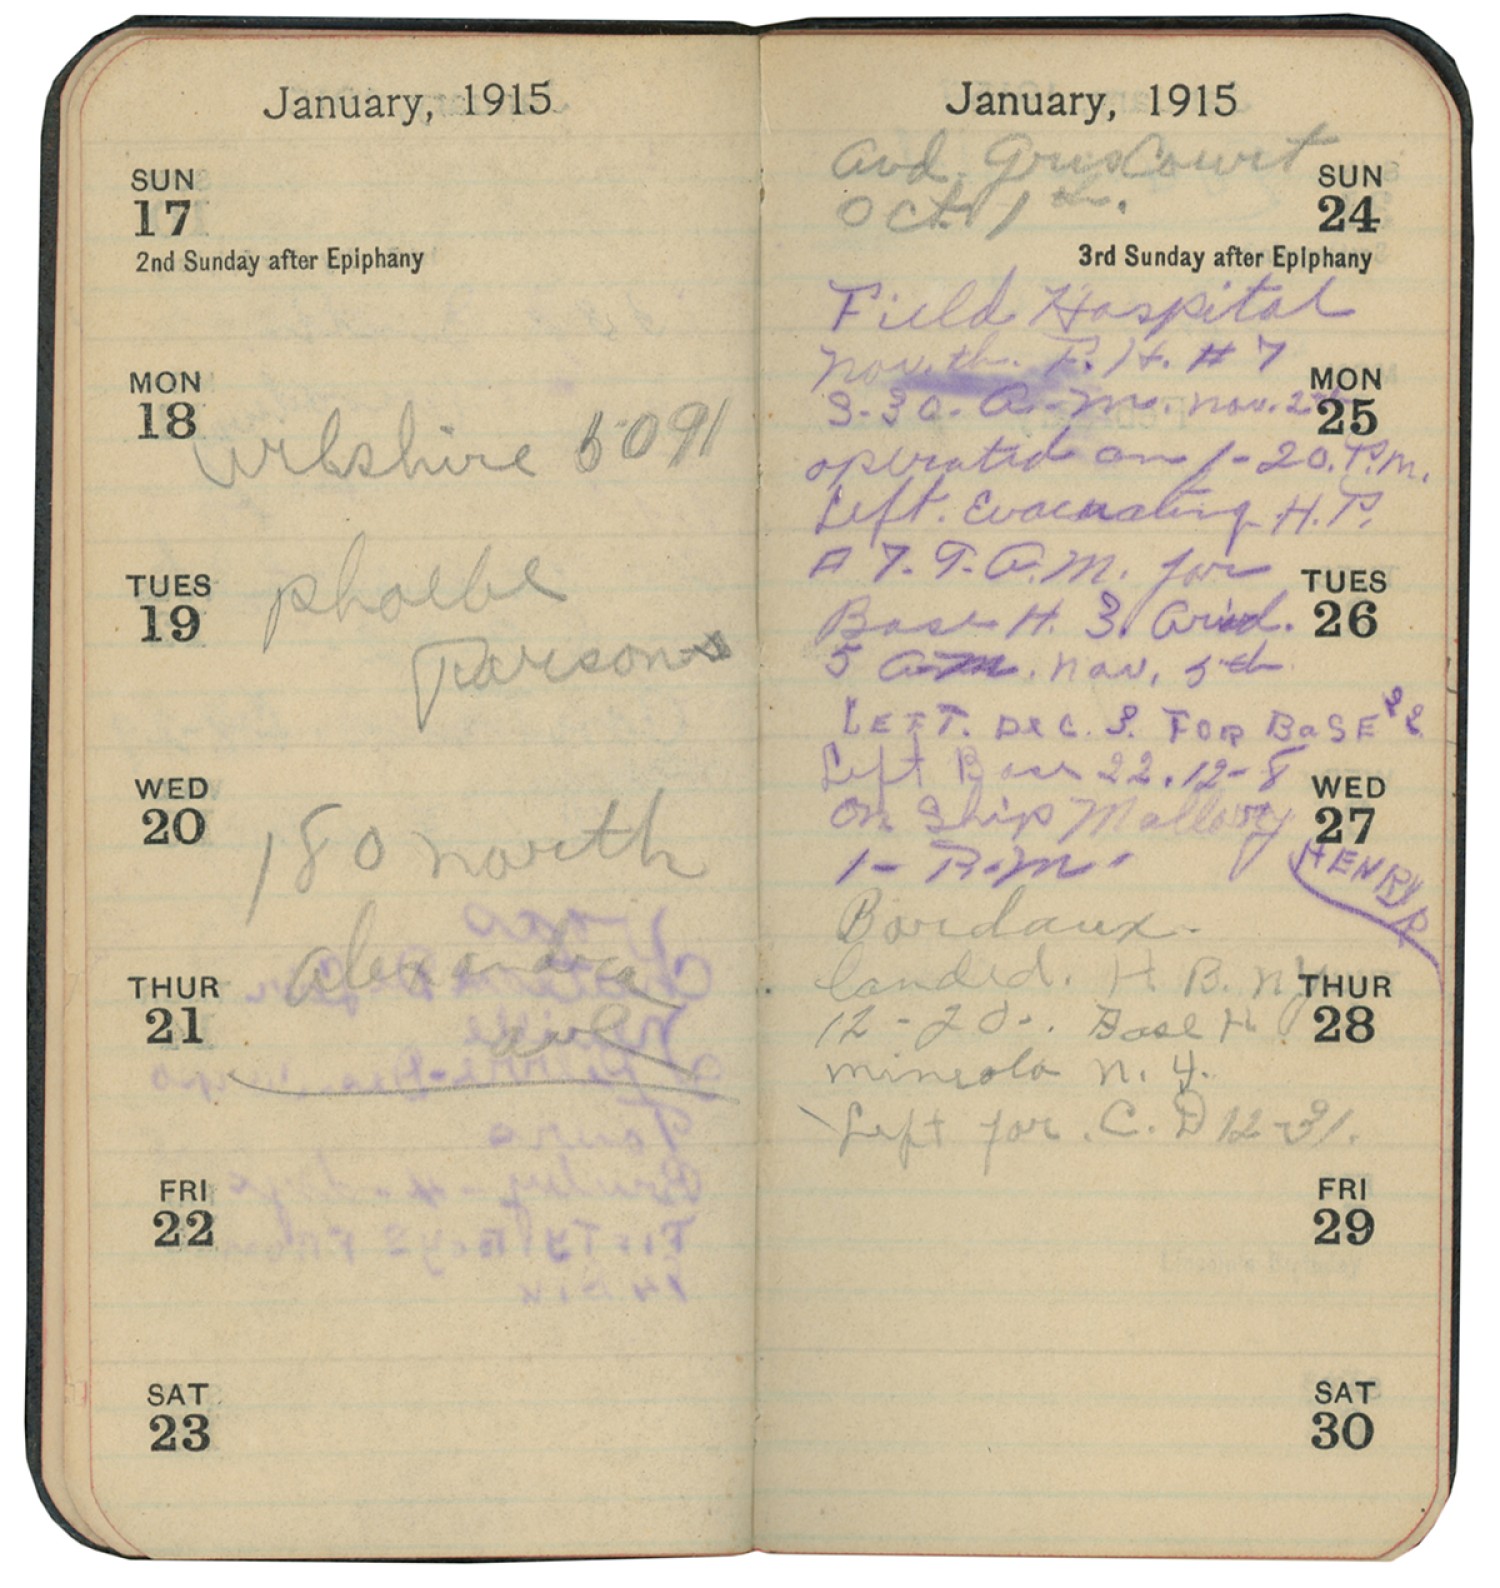 January, 1915
SUN
17
2nd Sunday after Epiphany
MON
18
Wilshire 6091
TUES
19
Phoebe
Parsons
WED
20
180 north
alexandria
THUR
21
ave
FRI
22
SAT
23
January, 1915
Court
SUN
24
Oct. 1
3rd Sunday after Epiphany
Field Hospital
F. H. # 7
MON
25
3-30. A.M. nov. 2
operated on 1-20. P.M.
Left. Evacuating H.P.
# 7. 9. A.M. for
TUES
26
Base H. 3. Arivd.
5 A.M. nov, 5th
LEFT. DEC. 3. FOR BaSE 22
Left Base 22. 12-8
WED
27
on Ship Mallory
HENRY R
1- P.M.
Bordaux.
landed. H. B. n.y
THUR
28
12-20-. Base H
mineola n.y.
Left for. C. D 12-31.
FRI
29
SAT
30